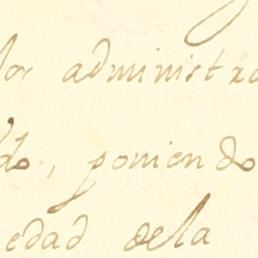 los administra
do, poniendo
edad dela